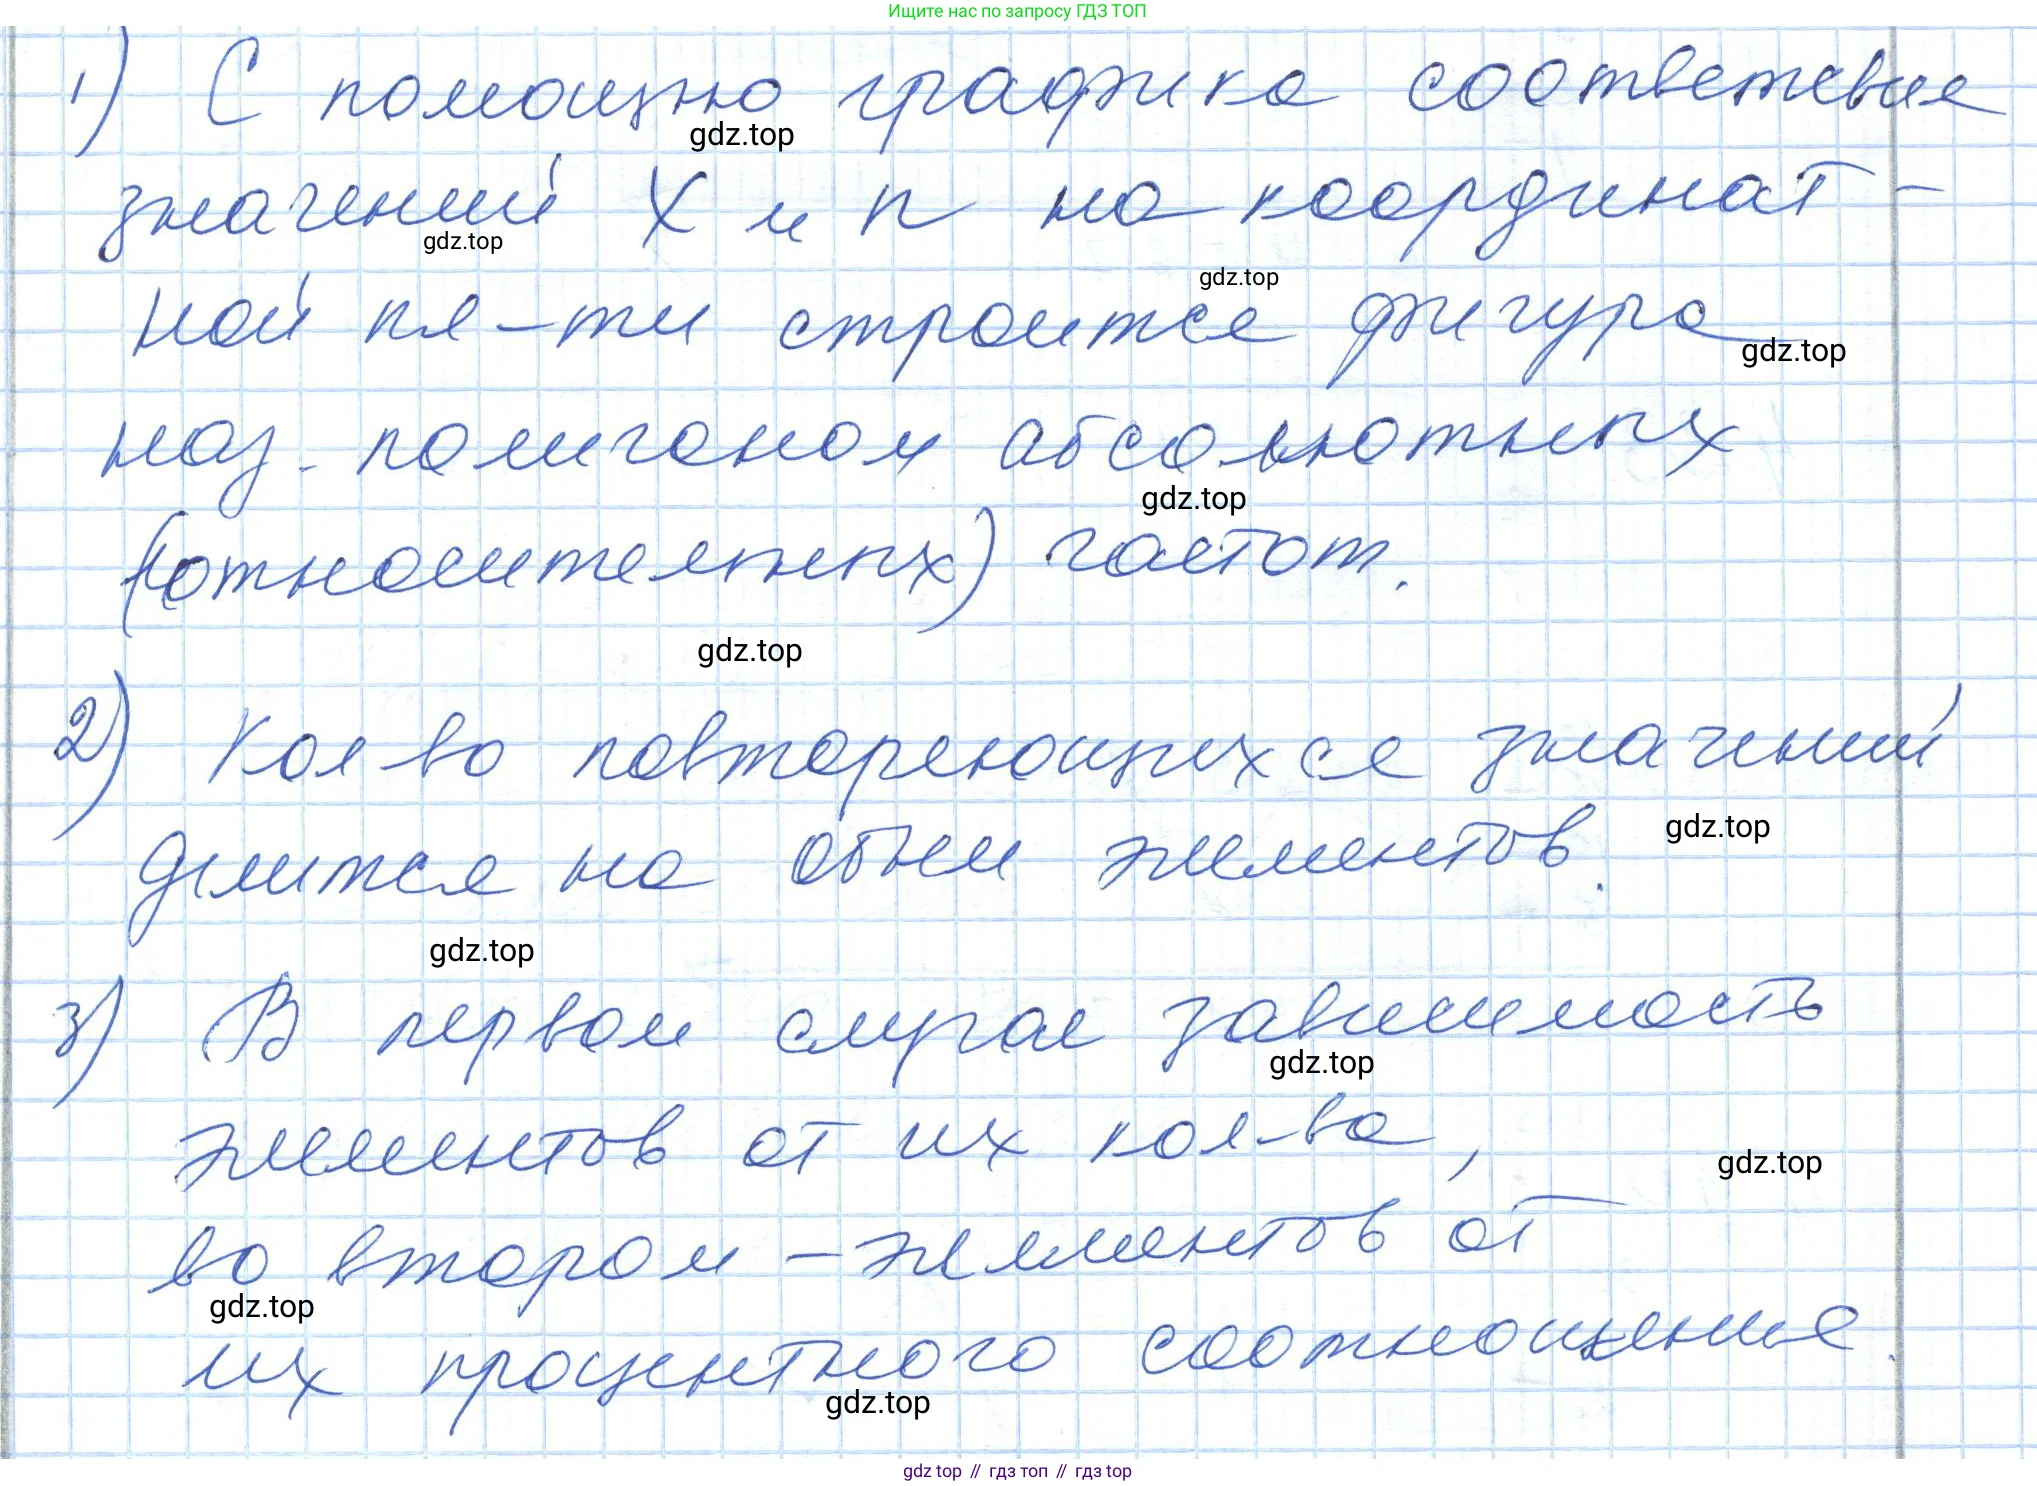 Ищите нас по запросу ГДЗ ТОП
1) С помощью графика соответствие
gdz.top
значений X и n на координат-
gdz.top
gdz.top
ной пл-ти строится фигура
gdz.top
наз. полигоном абсолютных
gdz.top
(относительных) частот.
gdz.top
2) Кол-во повторяющихся значений
gdz.top
делится на объем элементов.
gdz.top
3) В первом случае зависимость
gdz.top
элементов от их кол-ва,
gdz.top
во втором – элементов от
gdz.top
их процентного соотношения.
gdz.top
gdz top // гдз топ // гдз top